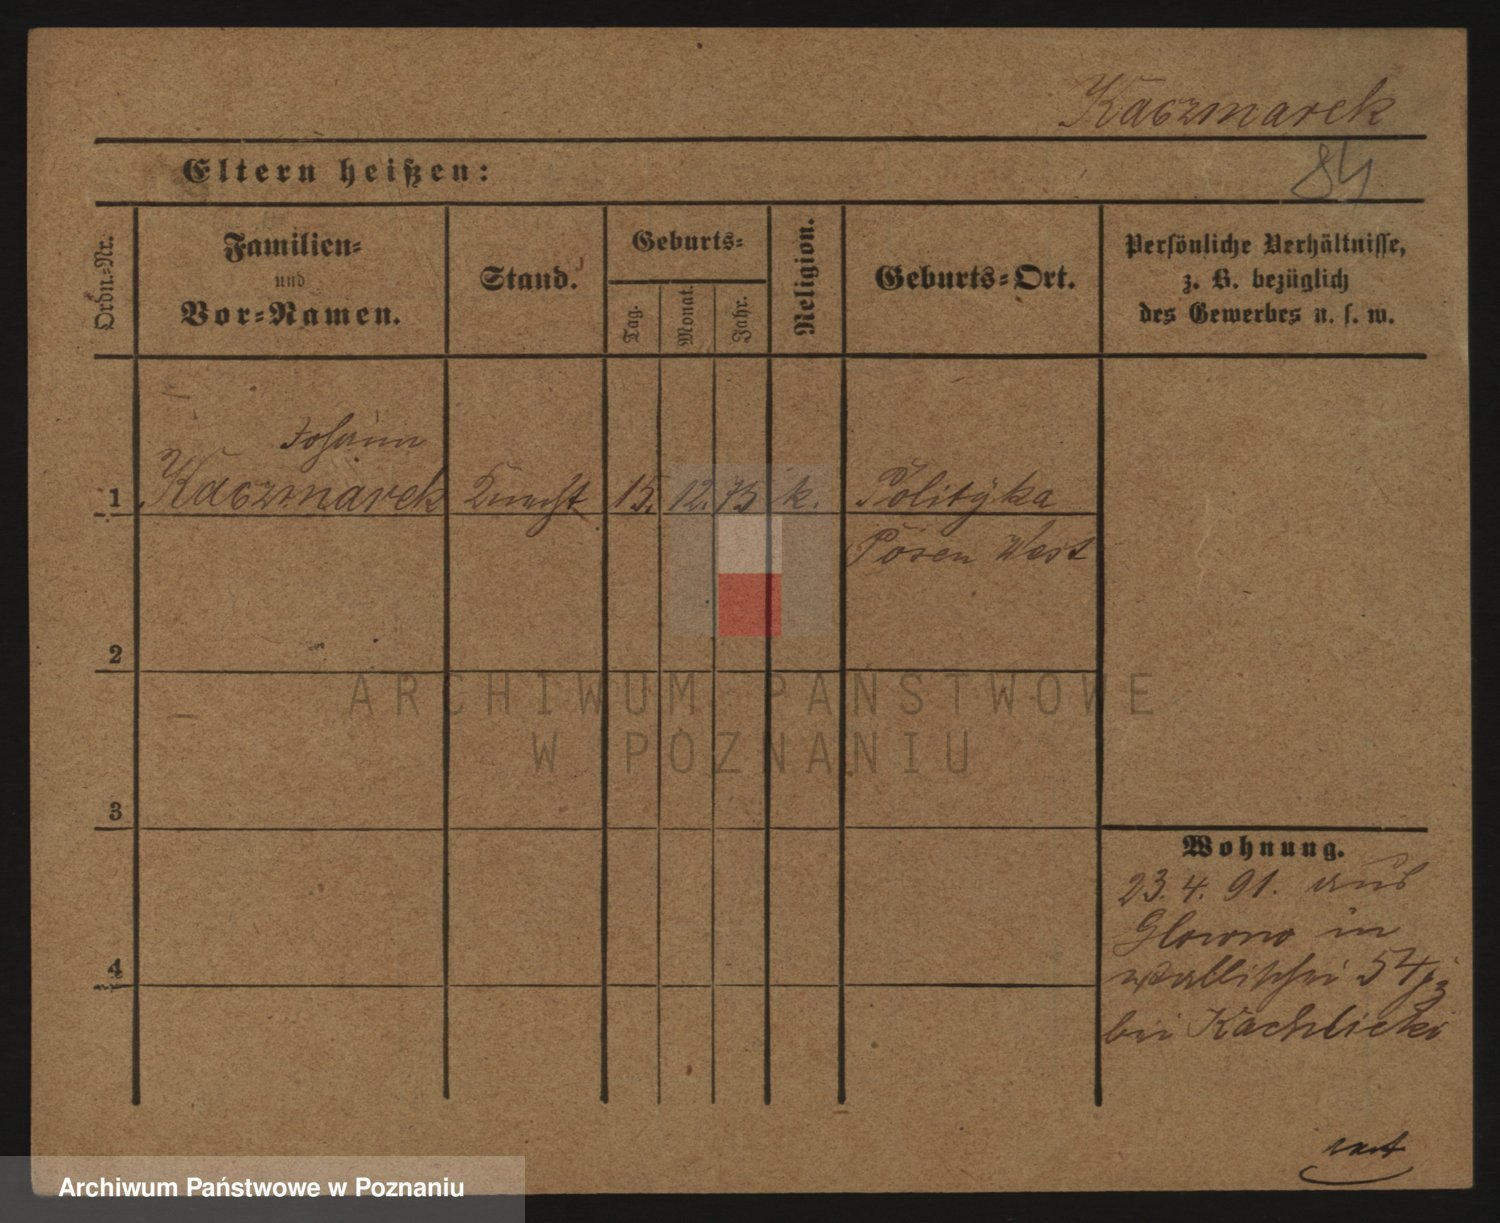 Kaczmarek
Eltern heißen:
84
Ordn.-Nr.
Familien-
und
Vor-Namen.
Stand.
Geburts-
Tag.
Monat.
Jahr.
Religion.
Geburts-Ort.
Persönliche Verhältnisse,
z. B. bezüglich
des Gewerbes u. s. w.
Johann
1 Kaczmarek Knecht 15. 12. 75 k. Polityka
Posen West
2
3
4
Wohnung.
23. 4. 91. aus
Glowno in
Wallischei 54
bei Kachlicki
ARCHIWUM PAŃSTWOWE
W POZNANIU
Archiwum Państwowe w Poznaniu